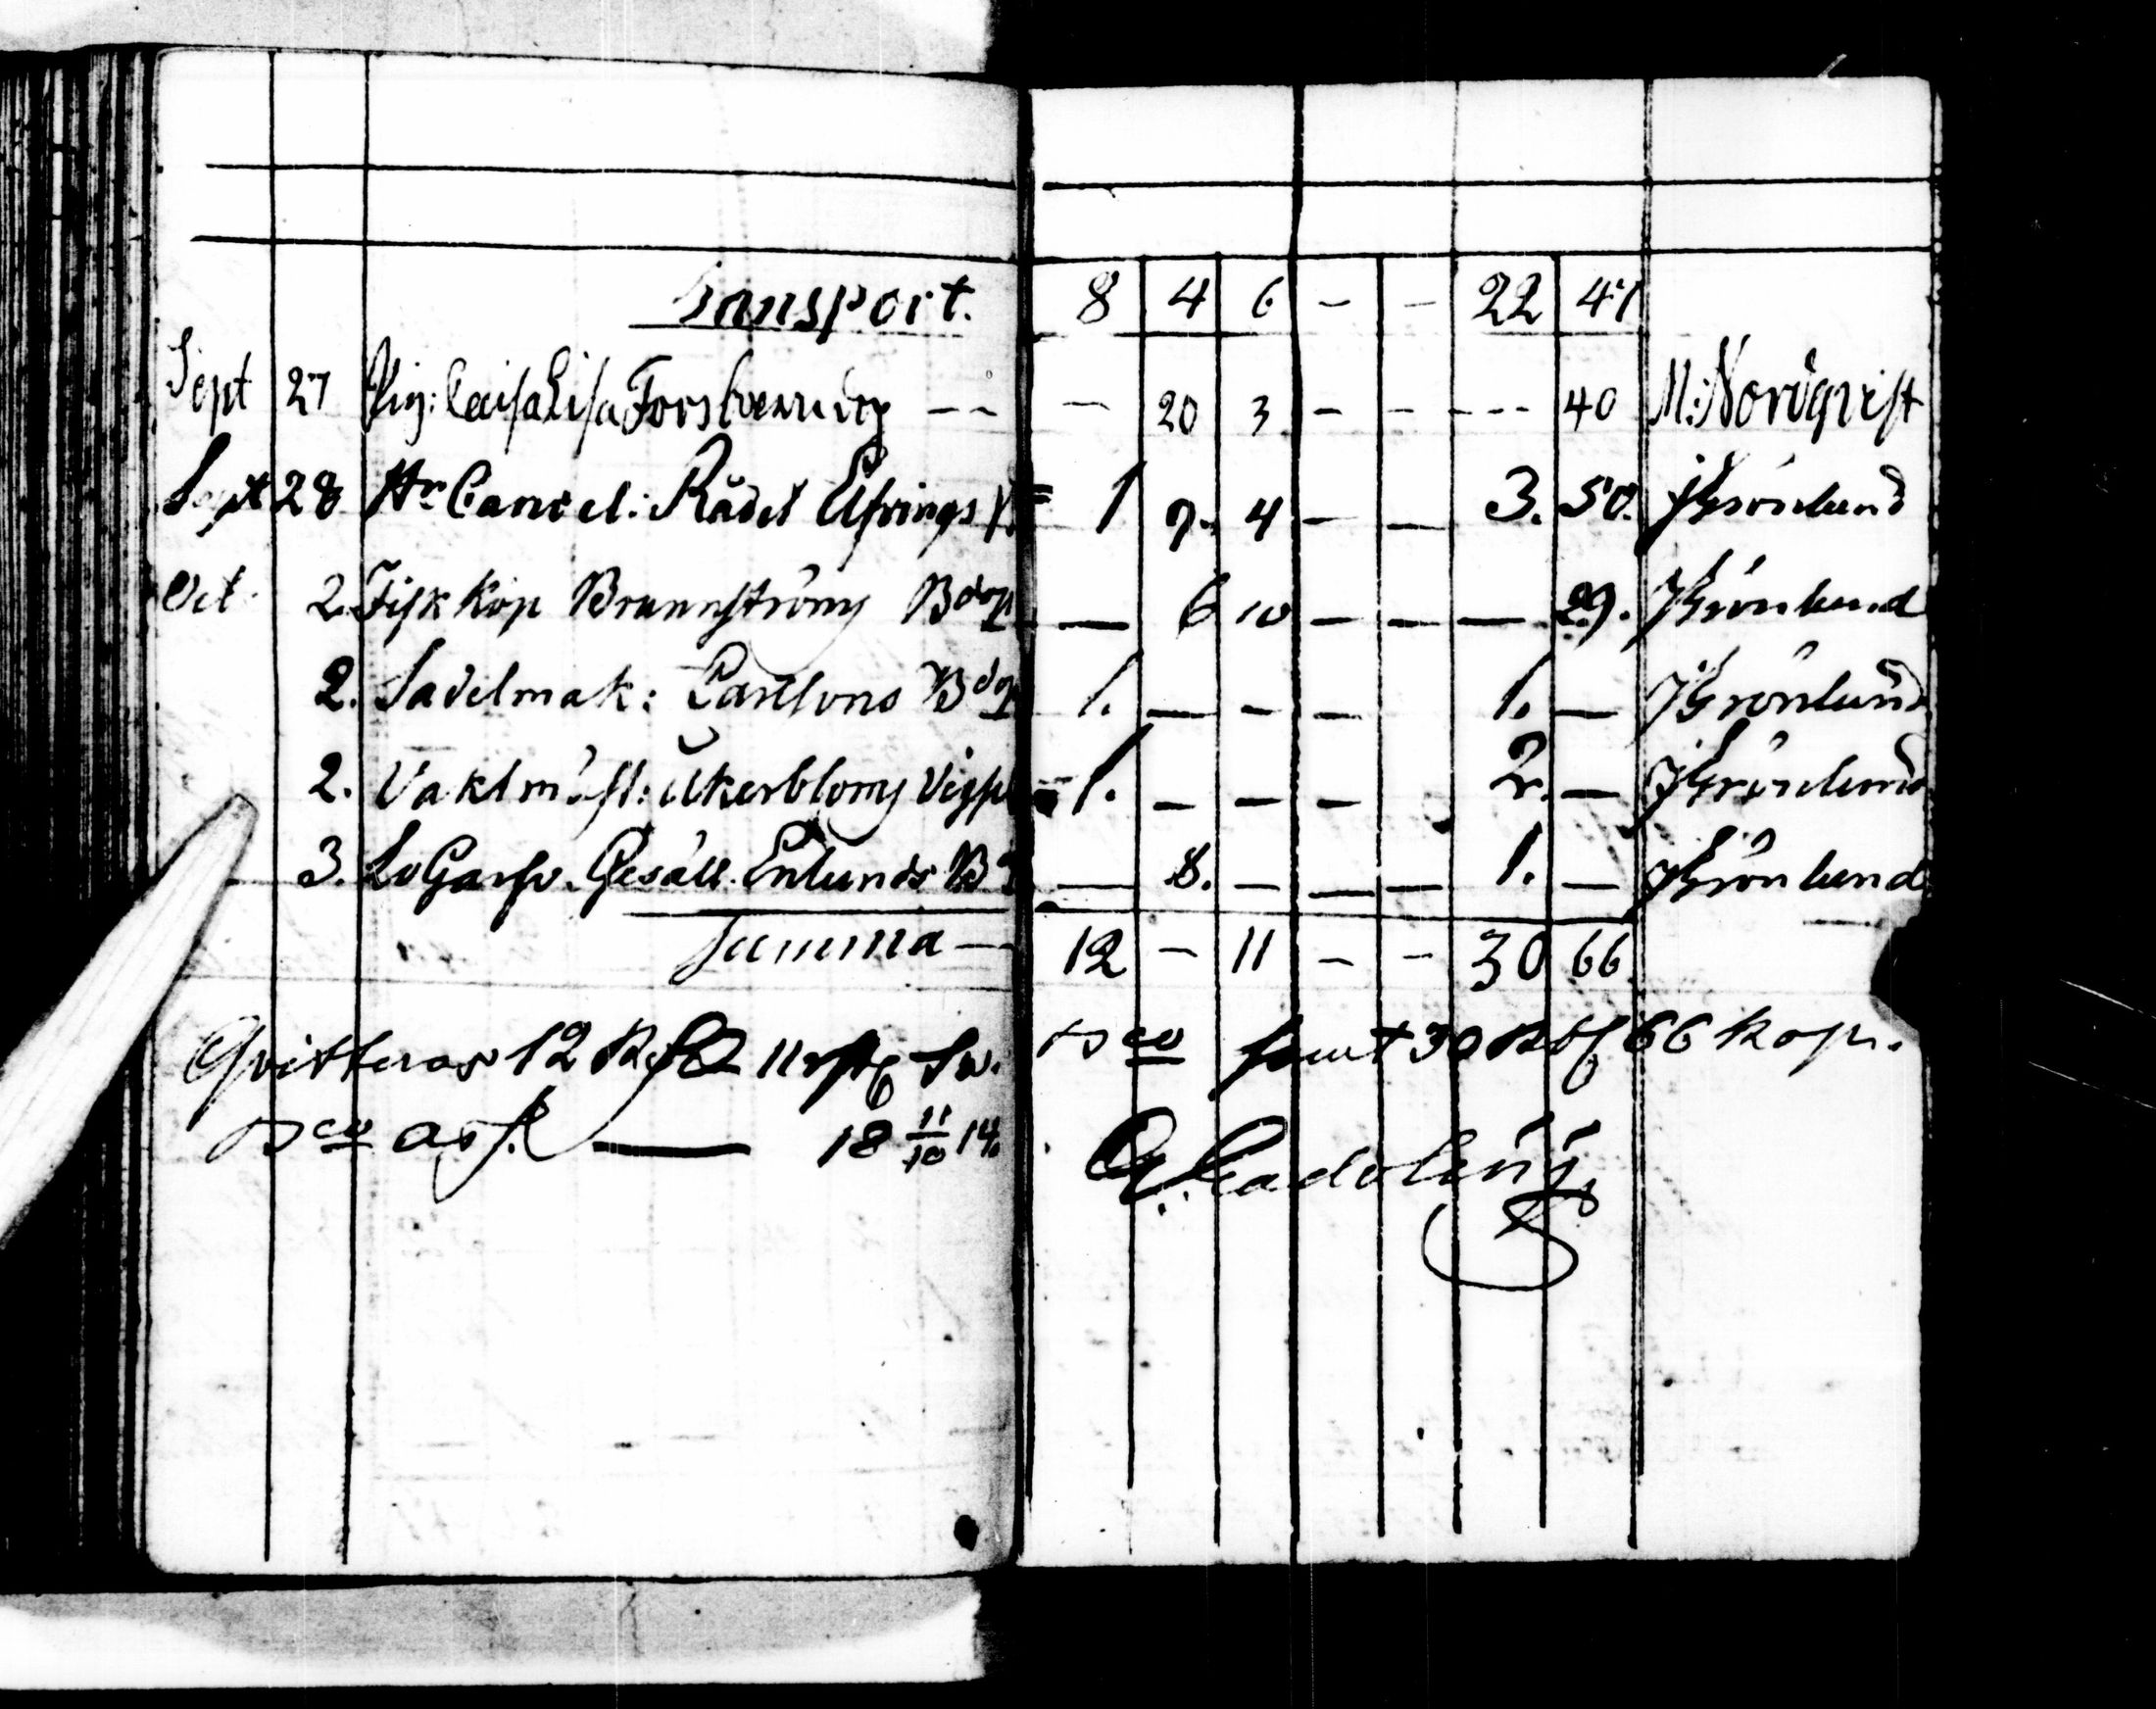 Transport. 8 4 6 - - 22 47
Sept 27 Pig: Caisa Lisa - - - 20 3 - - - - - 40 M: Nordqvist
Sept 28 Hr Cancel: Rådet Elfrings = 1 9. 4 - - 3. 50. JGrönlund
Oct 2. Fisk Köp Brunnströms Bdop - 6 10 - - - 29. JGrönlund
2. Sadelmak: Carlsons Bdop 1. - - - 1. - JGrönlund
2. Vaktmäst: Åkerbloms Vigsl - 1. - - - 2. - JGrönlund
3. LoGarfv. Gesäll. Enlunds B - 8. - - - 1. - JGrönlund
Summa - 12 - 11 - - 30 66
Qvitteras 12 11 Sv. Bco samt 30 66 kop.
Bco — 18 11/10 14. Gadolin